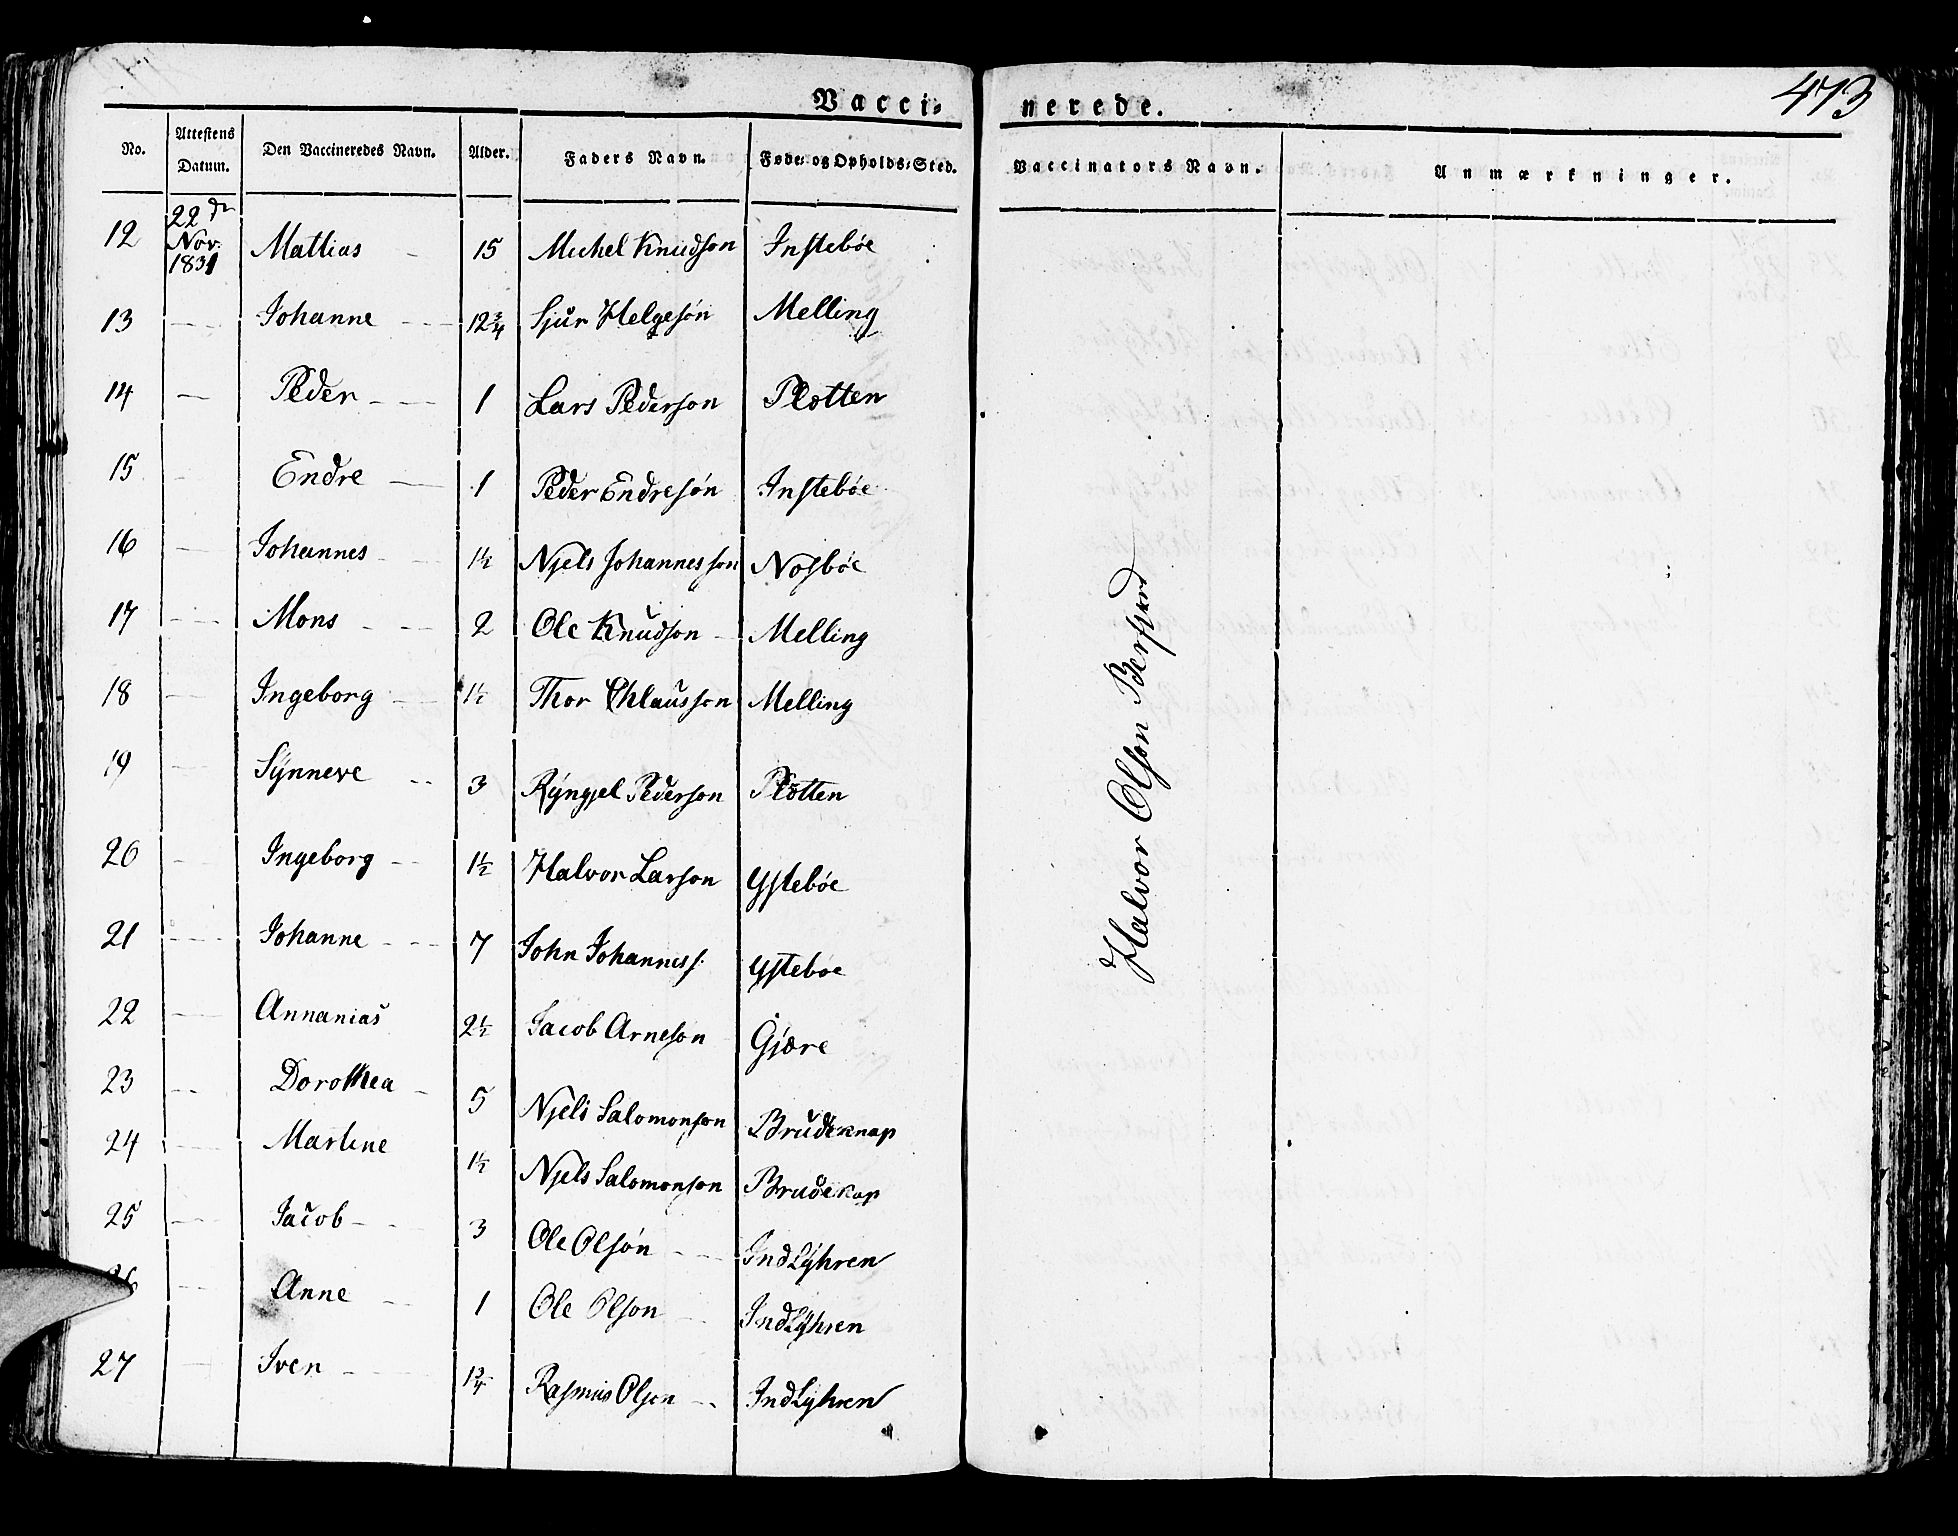 473
Vacci= nerede.
No. Attestens Datum. Den Vaccineredes Navn. Alder. Faders Navn. Føde= og Opholds=Sted. Vaccinators Navn. Anmærkninger.
12 22de Nov. 1831 Mathias - 15 Michel Knudson Instebøe
13 - - Johanne - - 12 3/4 Sjur Helgesøn Melling
14 - Peder - - 1 Lars Pederson Plotten
15 - Endre - 1 Peder Endresøn Instebøe
16 - Johannes - 1 1/2 Njels Johannesson Nosbøe
17 - - Mons - - 2 Ole Knudson - Melling
18 - Ingeborg - 1 1/2 Thor Chlausson Melling
19 - Synneve - - 3 Ryngjel Pederson Plotten
20 - Ingeborg - - 1 1/2 Halvor Larson Ystebøe
21 - - Johanne - - 7 John Johanness. Ystebøe
22 - Annanias 2 1/2 Jacob Arneson Gjøre
23 - - Dorothea - 5 Njels Salomonson Brudeknap
24 - Martine 1 1/2 Njels Salomonson Brudekap
25 - Jacob - - 3 Ole Olsøn - - IndLyhren
26 - Anne - 1 Ole Olson - IndLyhren
27 - Sven - - 1 3/4 Rasmus Olson - - IndLyhren
Halvor Olson Berfjord